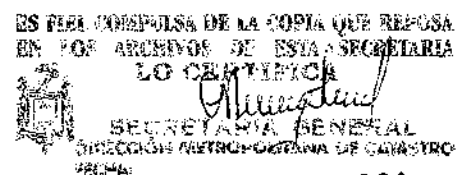 ES FIEL COMPULSA DE LA COPIA QUE REPOSA
EN LOS ARCHIVOS DE ESTA SECRETARIA
LO CERTIFICA
SECRETARIA GENERAL
DIRECCIÓN METROPOLITANA DE CATASTRO
FECHA: